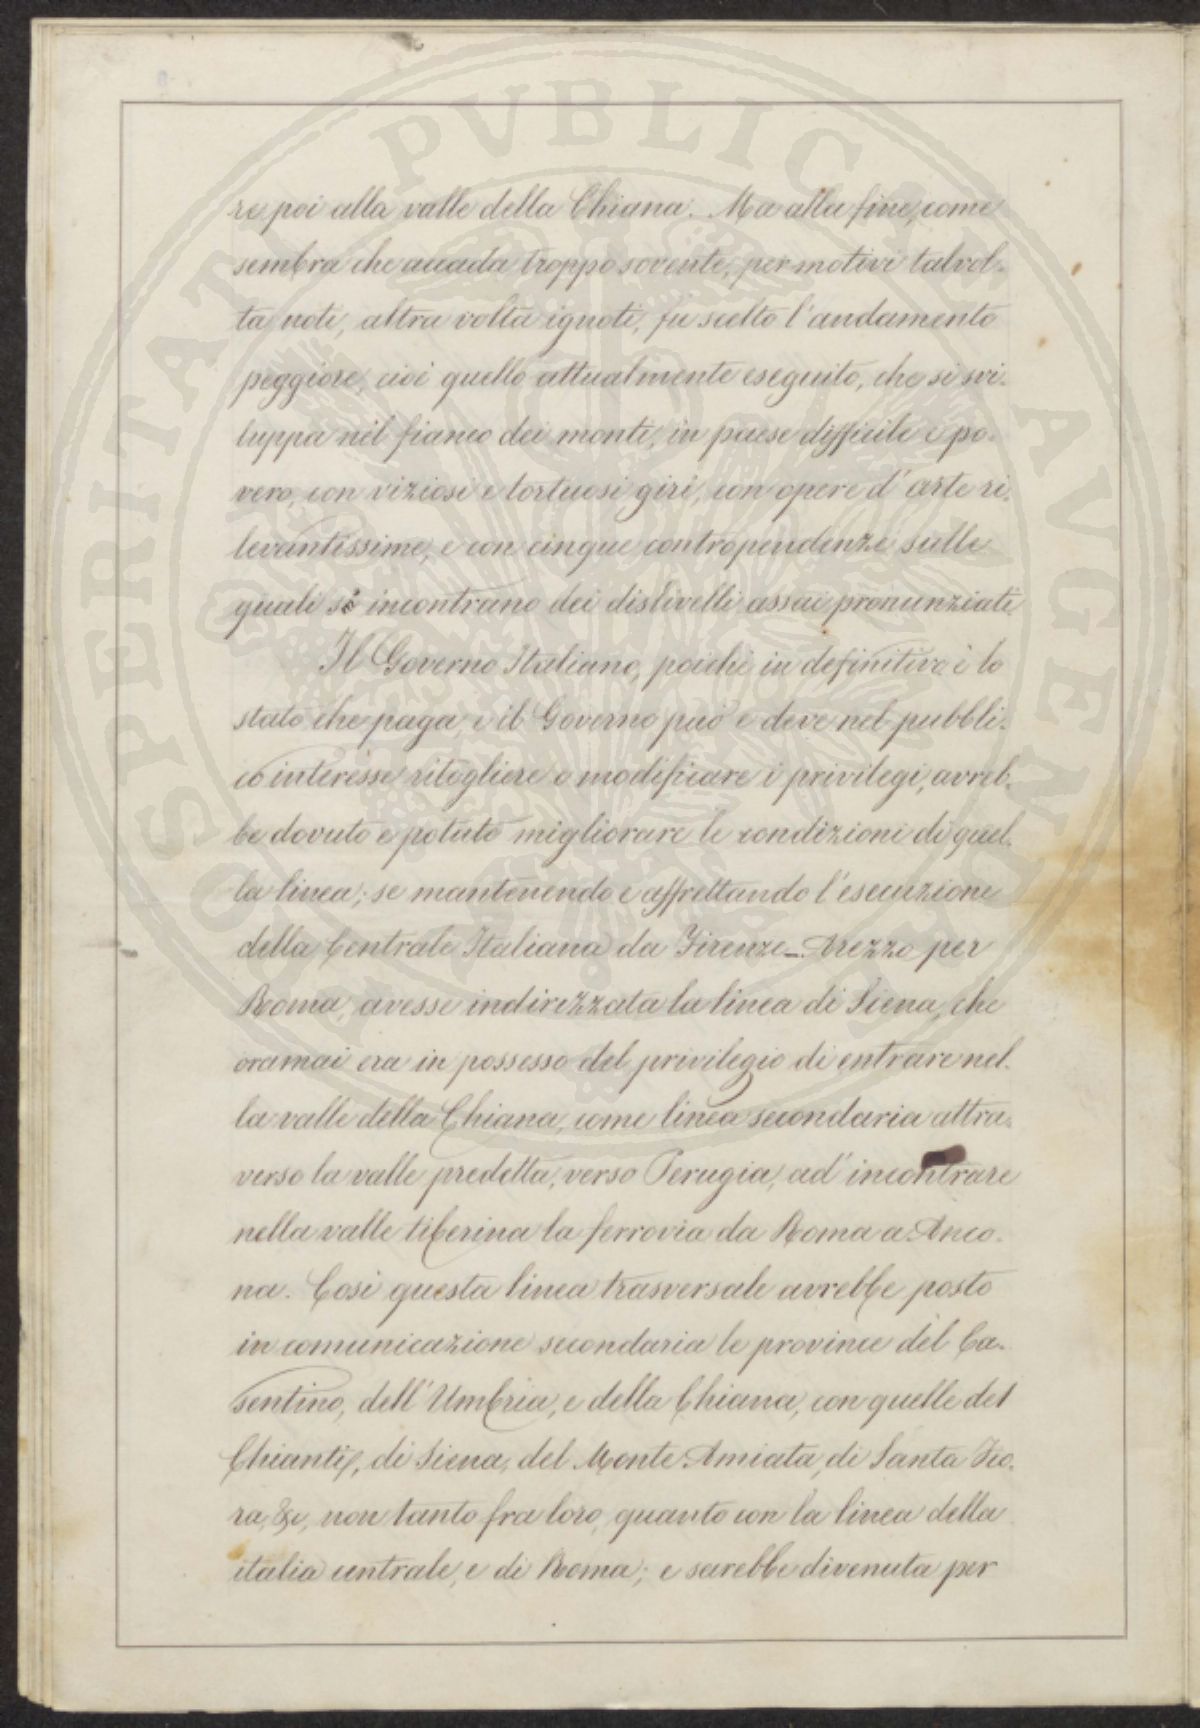 re poi alla valle della Chiana. Ma alla fine, come
sembra che accada troppo sovente, per motivi talvol-
ta noti, altra volta ignoti, fu scelto l'andamento
peggiore, cioè quello attualmente eseguito, che si svi-
luppa nel fianco dei monti, in paese difficile e po-
vero, con viziosi e tortuosi giri, con opere d'arte ri-
levantissime, e con cinque contropendenze sulle
quali si incontrano dei dislivelli assai pronunziati
Il Governo Italiano, poichè in definitiva è lo
stato che paga, e il Governo può e deve nel pubbli-
co interesse ritogliere o modificare i privilegi, avreb-
be dovuto e potuto migliorare le condizioni di quel-
la linea; se mantenendo e affrettando l'esecuzione
della Centrale Italiana da Firenze-Arezzo per
Roma, avesse indirizzata la linea di Siena, che
oramai era in possesso del privilegio di entrare nel-
la valle della Chiana, come linea secondaria attra-
verso la valle predetta, verso Perugia, ad' incontrare
nella valle tiberina la ferrovia da Roma a Anco-
na. Così questa linea trasversale avrebbe posto
in comunicazione secondaria le provincie del Ca-
sentino, dell'Umbria, e della Chiana, con quelle del
Chianti, di Siena, del Monte Amiata, di Santa Fio-
ra, &c, non tanto fra loro, quanto con la linea della
italia centrale, e di Roma; e sarebbe divenuta per
PVBLICAE
AVGENDAE
PROSPERITATI